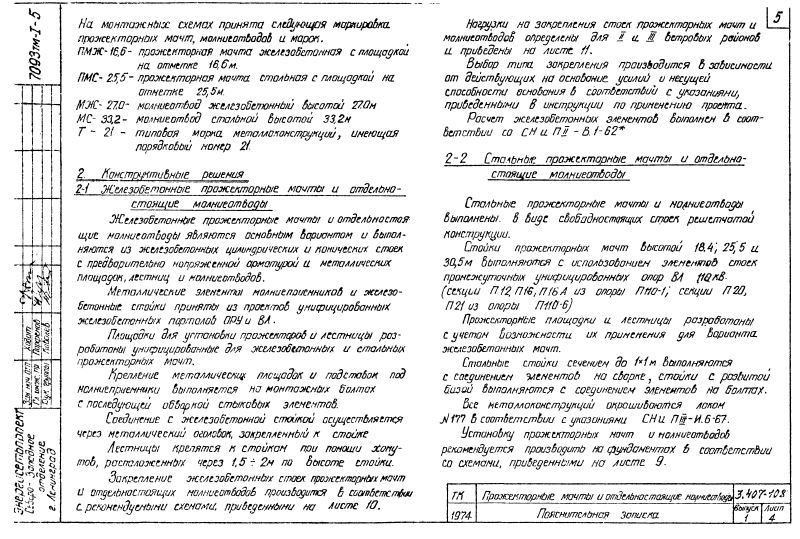 7093тм-I-5
5
На монтажных схемах принята следующая маркировка
прожекторных мачт, молниеотводов и марок.
ПМЖ-16,6- прожекторная мачта железобетонная с площадкой
на отметке 16,6м.
ПМС-25,5-прожекторная мачта стальная с площадкой на
отметке 25,5м.
МЖ-27.0- молниеотвод железобетонный высотой 27.0м
МС-33,2- молниеотвод стальной высотой 33,2м
Т - 21 - типовая марка металлоконструкций, имеющая
порядковый номер 21.
2. Конструктивные решения
2-1 Железобетонные прожекторные мачты и отдельно-
стоящие молниеотводы
Железобетонные прожекторные мачты и отдельностоя-
щие молниеотводы являются основным вариантом и выпол-
няются из железобетонных цилиндрических и конических стоек
с предварительно напряженной арматурой и металлических
площадок, лестниц и молниеотводов.
Металлические элементы молниеприемников и железо-
бетонные стойки приняты из проектов унифицированных
железобетонных порталов ОРУ и ВЛ.
Площадки для установки прожекторов и лестницы раз-
работаны унифицированные для железобетонных и стальных
прожекторных мачт.
Крепление металлических площадок и подставок под
молниеприемники выполняется на монтажных болтах
с последующей обваркой стыковых элементов.
Соединение с железобетонной стойкой осуществляется
через металлический оголовок, закрепленный к стойке
Лестницы крепятся к стойкам при помощи хому-
тов, расположенных через 1,5 ÷ 2м по высоте стойки.
Закрепление железобетонных стоек прожекторных мачт
и отдельностоящих молниеотводов производится в соответствии
с рекомендуемыми схемами, приведенными на листе 10.
Нагрузки на закрепления стоек прожекторных мачт и
молниеотводов определены для II и III ветровых районов
и приведены на листе 11.
Выбор типа закрепления производится в зависимости
от действующих на основание усилий и несущей
способности основания в соответствии с указаниями,
приведенными в инструкции по применению проекта.
Расчет железобетонных элементов выполнен в соот-
ветствии со СН и П II - В.1-62*
2-2 Стальные прожекторные мачты и отдельно-
стоящие молниеотводы
Стальные прожекторные мачты и молниеотводы
выполнены в виде свободностоящих стоек решетчатой
конструкции.
Стойки прожекторных мачт высотой 18.4; 25,5 и
30,5м выполняются с использованием элементов стоек
промежуточных унифицированных опор ВЛ 110кв.
(секции П12, П16, П16А из опоры П110-1; секции П20,
П21 из опоры П110-6)
Прожекторные площадки и лестницы разработаны
с учетом возможности их применения для варианта
железобетонных мачт.
Стальные стойки сечением до 1×1м выполняются
с соединением элементов на сварке, стойки с развитой
базой выполняются с соединением элементов на болтах.
Все металлоконструкции окрашиваются лаком
N177 в соответствии с указаниями СН и П III-И.6-67.
Установку прожекторных мачт и молниеотводов
рекомендуется производить на фундаментах в соответствии
со схемами, приведенными на листе 9.
Энергосетьпроект
Северо-Западное
отделение
г. Ленинград
ТК
1974
Прожекторные мачты и отдельностоящие молниеотводы
Пояснительная записка
3.407-108
Выпуск
1
Лист
4